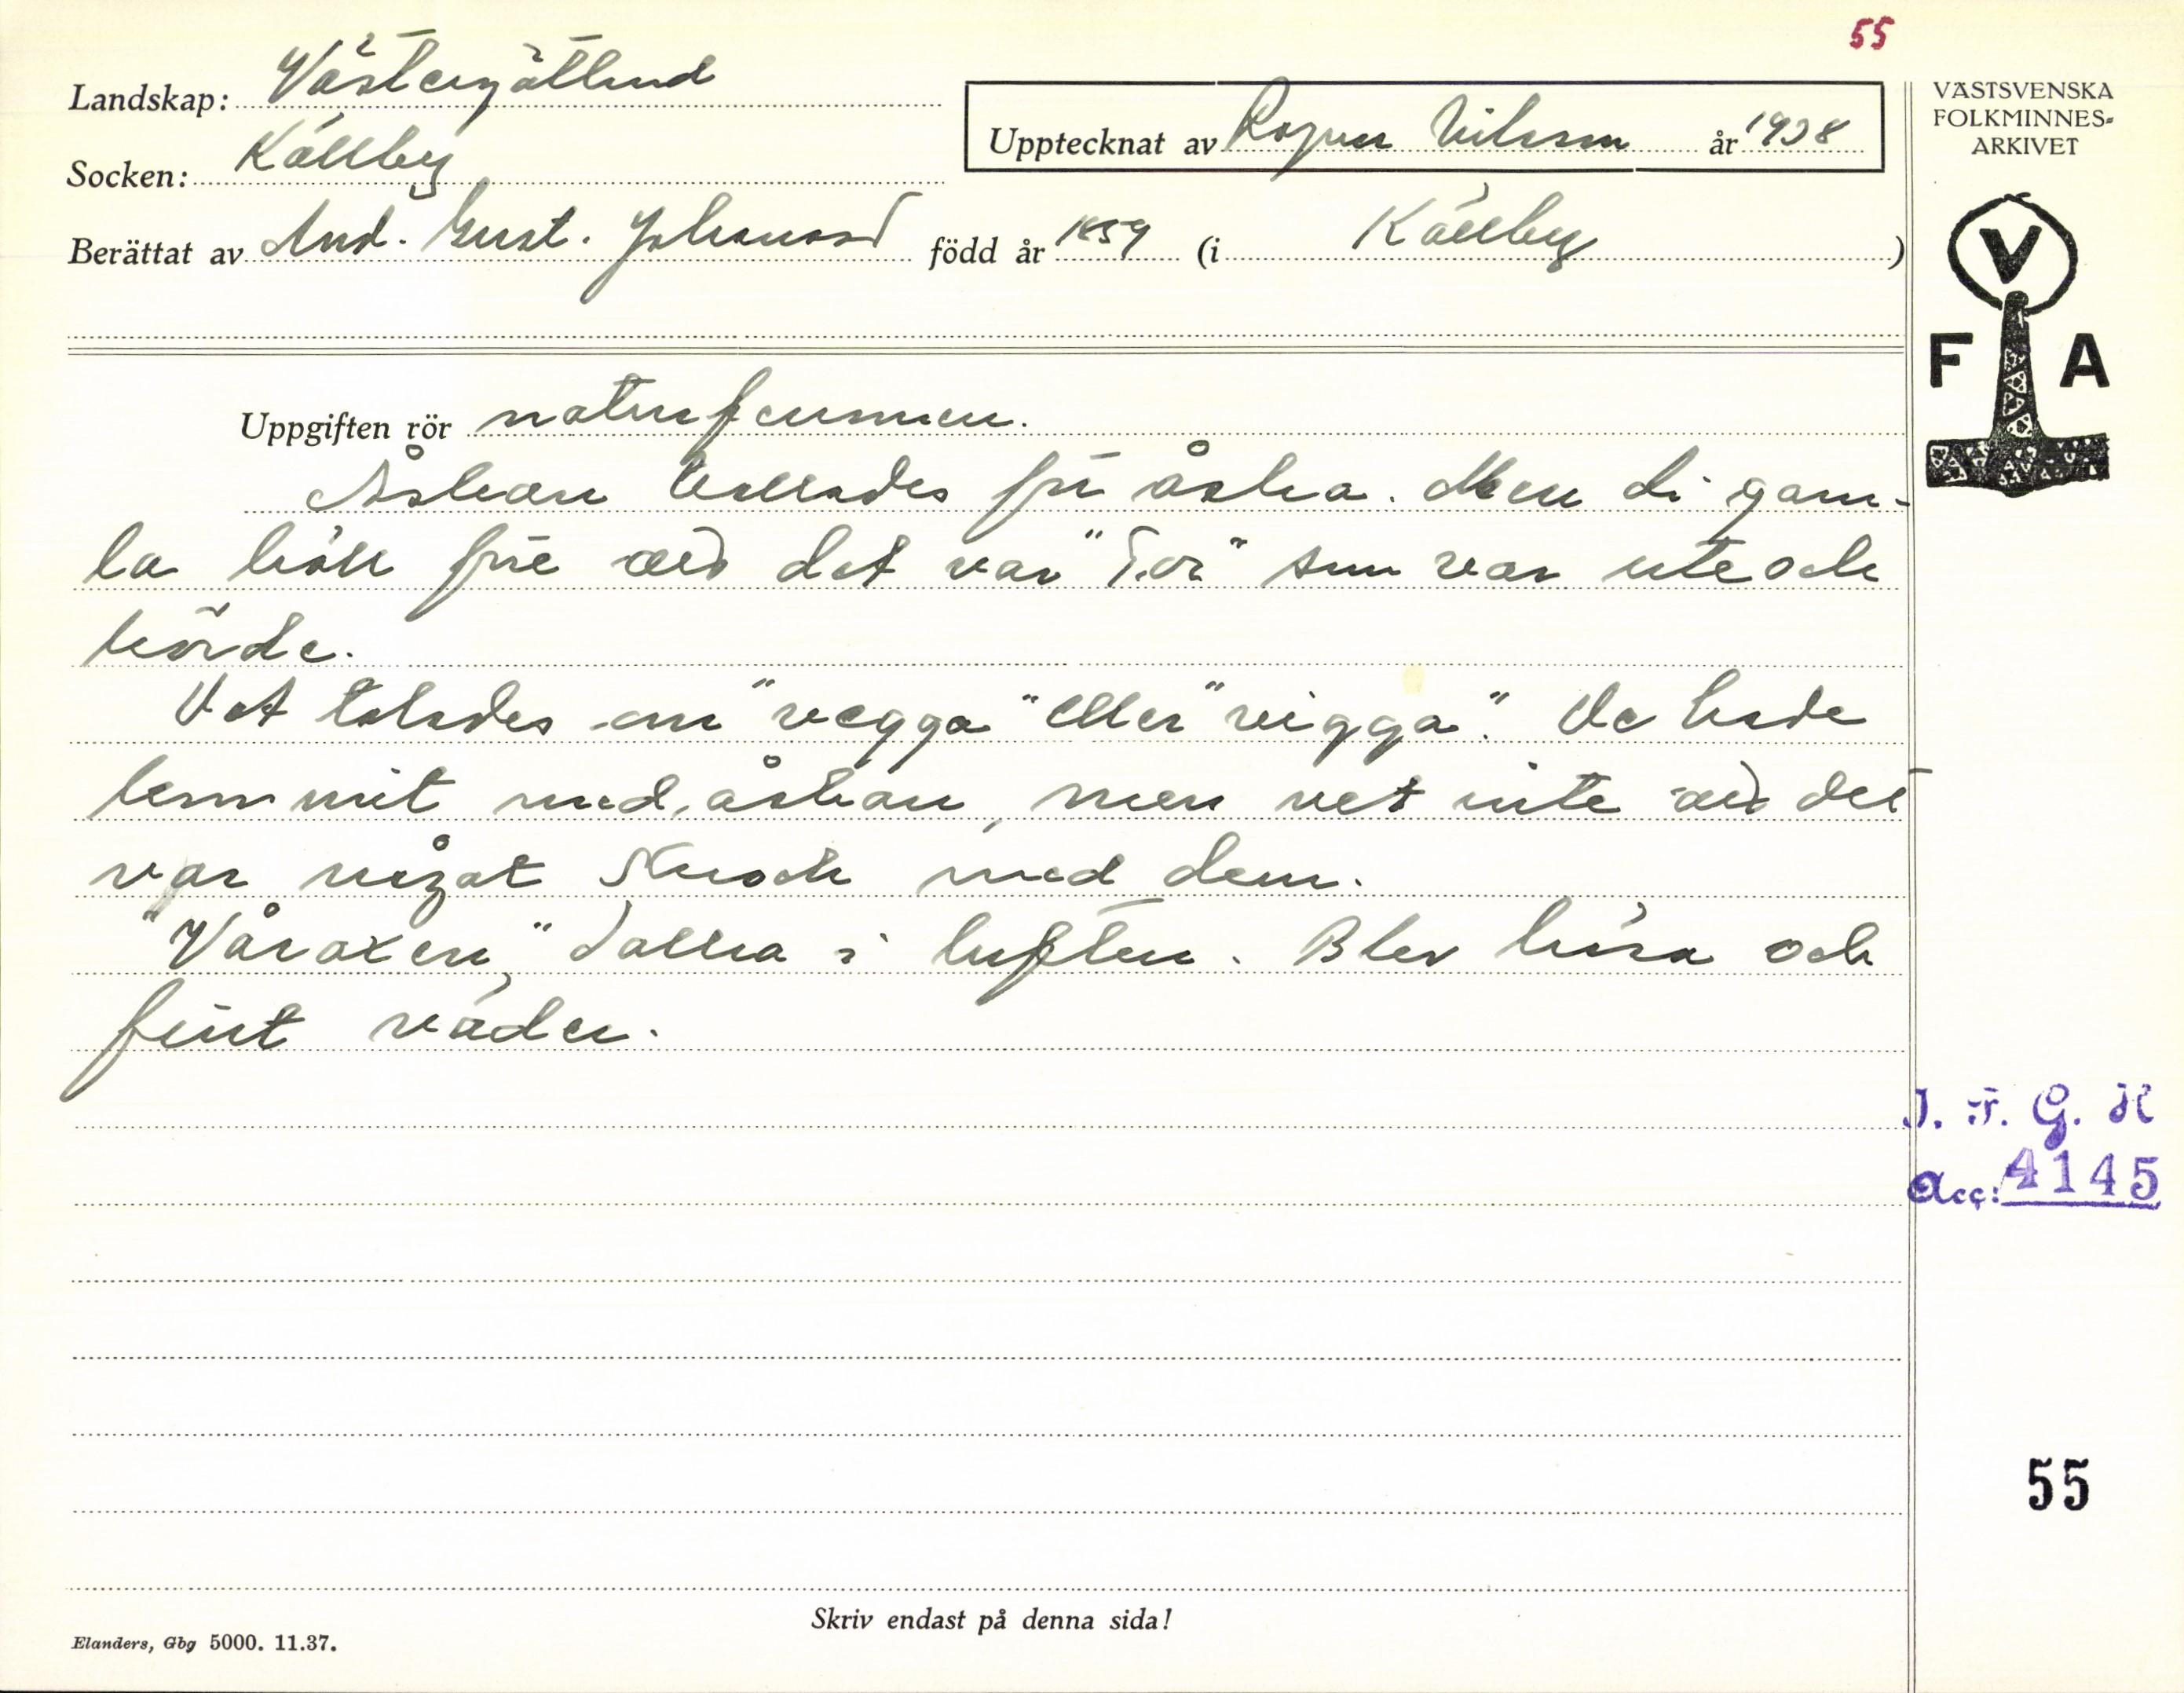 55
Landskap: Västergötland
Socken: Källby
Upptecknat av Ragnar Nilsson år 1938
Berättat av And. Gust. Johansson född år 1859 (i Källby)
VÄSTSVENSKA
FOLKMINNES-
ARKIVET
V
F A
Uppgiften rör naturfenomen.
Åskan kallades för åska. Men di gam-
la höll före att det var "Tor" som var ute och
körde.
Det talades om "vegga" eller "vigga". De hade
kommit med åskan, men vet inte att det
var något skrock med dem.
"Våraxen," dallra i luften. Blev klara och
fint väder.
I. F. G. H
Acc: 4145
55
Skriv endast på denna sida!
Elanders, Gbg 5000. 11.37.